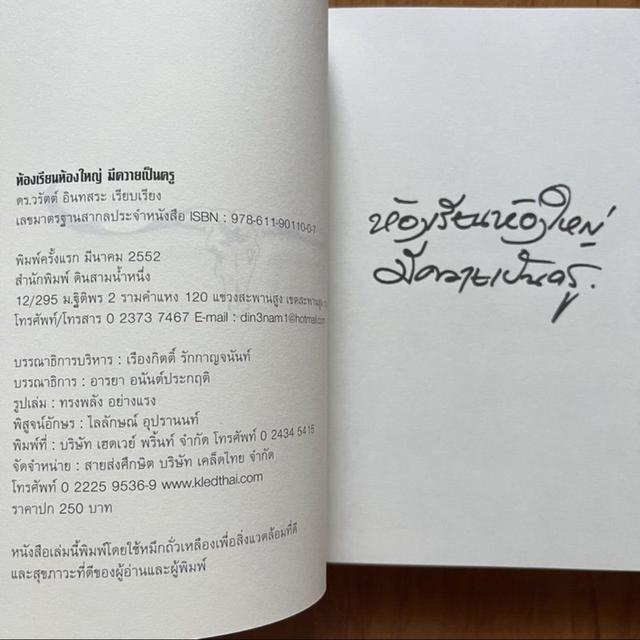 ห้องเรียนห้องใหญ่ มีควายเป็นครู
ดร.วรัตต์ อินทสระ เรียบเรียง
เลขมาตรฐานสากลประจำหนังสือ ISBN : 978-611-90110-0-7
พิมพ์ครั้งแรก มีนาคม 2552
สำนักพิมพ์ ดินสามน้ำหนึ่ง
12/295 ม.ฐิติพร 2 รามคำแหง 120 แขวงสะพานสูง เขตสะพานสูง
โทรศัพท์/โทรสาร 0 2373 7467 E-mail : din3nam1@hotmail.com
บรรณาธิการบริหาร : เรืองกิตติ์ รักกาญจนันท์
บรรณาธิการ : อารยา อนันต์ประกฤติ
รูปเล่ม : ทรงพลัง อย่างแรง
พิสูจน์อักษร : ไลลักษณ์ อุปรานนท์
พิมพ์ที่ : บริษัท เฮดเวย์ พริ้นท์ จำกัด โทรศัพท์ 0 2434 5415
จัดจำหน่าย : สายส่งศึกษิต บริษัท เคล็ดไทย จำกัด
โทรศัพท์ 0 2225 9536-9 www.kledthai.com
ราคาปก 250 บาท
หนังสือเล่มนี้พิมพ์โดยใช้หมึกถั่วเหลืองเพื่อสิ่งแวดล้อมที่ดี
และสุขภาวะที่ดีของผู้อ่านและผู้พิมพ์
ห้องเรียนห้องใหญ่
มีควายเป็นครู.